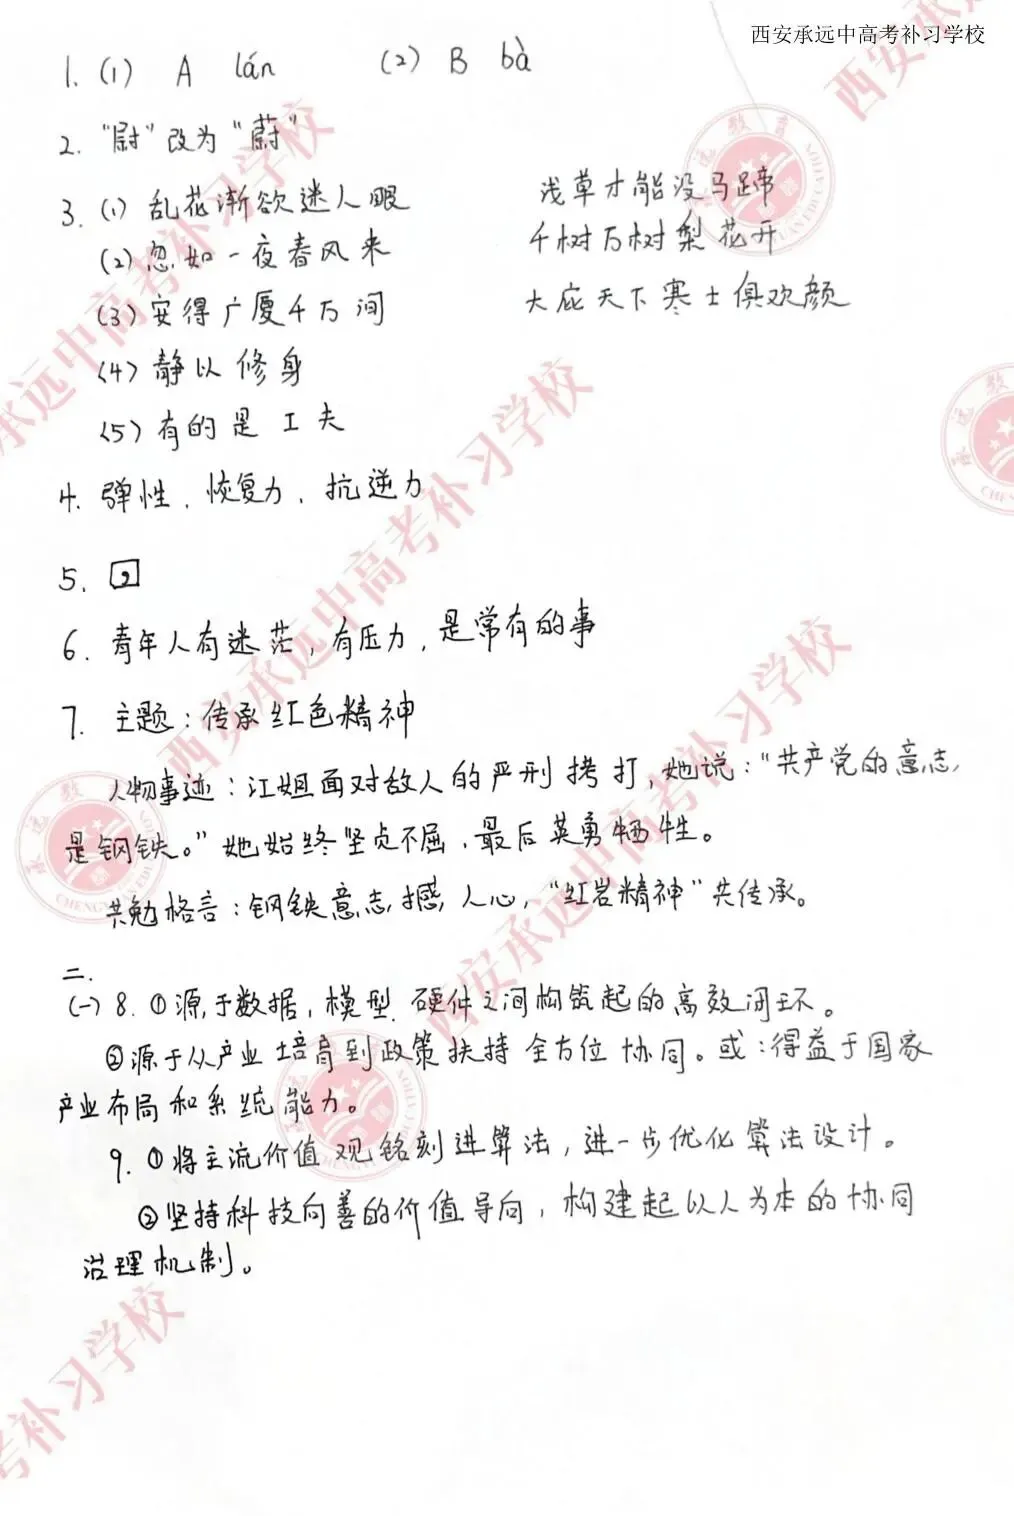 西安承远中高考补习学校
1. (1) A lán (2) B bà
2. “尉”改为“蔚”
3. (1) 乱花渐欲迷人眼 浅草才能没马蹄
(2) 忽如一夜春风来 千树万树梨花开
(3) 安得广厦千万间 大庇天下寒士俱欢颜
(4) 静以修身
(5) 有的是工夫
4. 弹性、恢复力、抗逆力
5. ，
6. 青年人有迷茫，有压力，是常有的事
7. 主题：传承红色精神
人物事迹：江姐面对敌人的严刑拷打，她说：“共产党的意志
是钢铁。”她始终坚贞不屈，最后英勇牺牲。
共勉格言：钢铁意志撼人心，“红岩精神”共传承。
二.
(一) 8. ①源于数据，模型，硬件之间构筑起的高效闭环。
②源于从产业培育到政策扶持全方位协同。或：得益于国家
产业布局和系统能力。
9. ①将主流价值观铭刻进算法，进一步优化算法设计。
②坚持科技向善的价值导向，构建起以人为本的协同
治理机制。